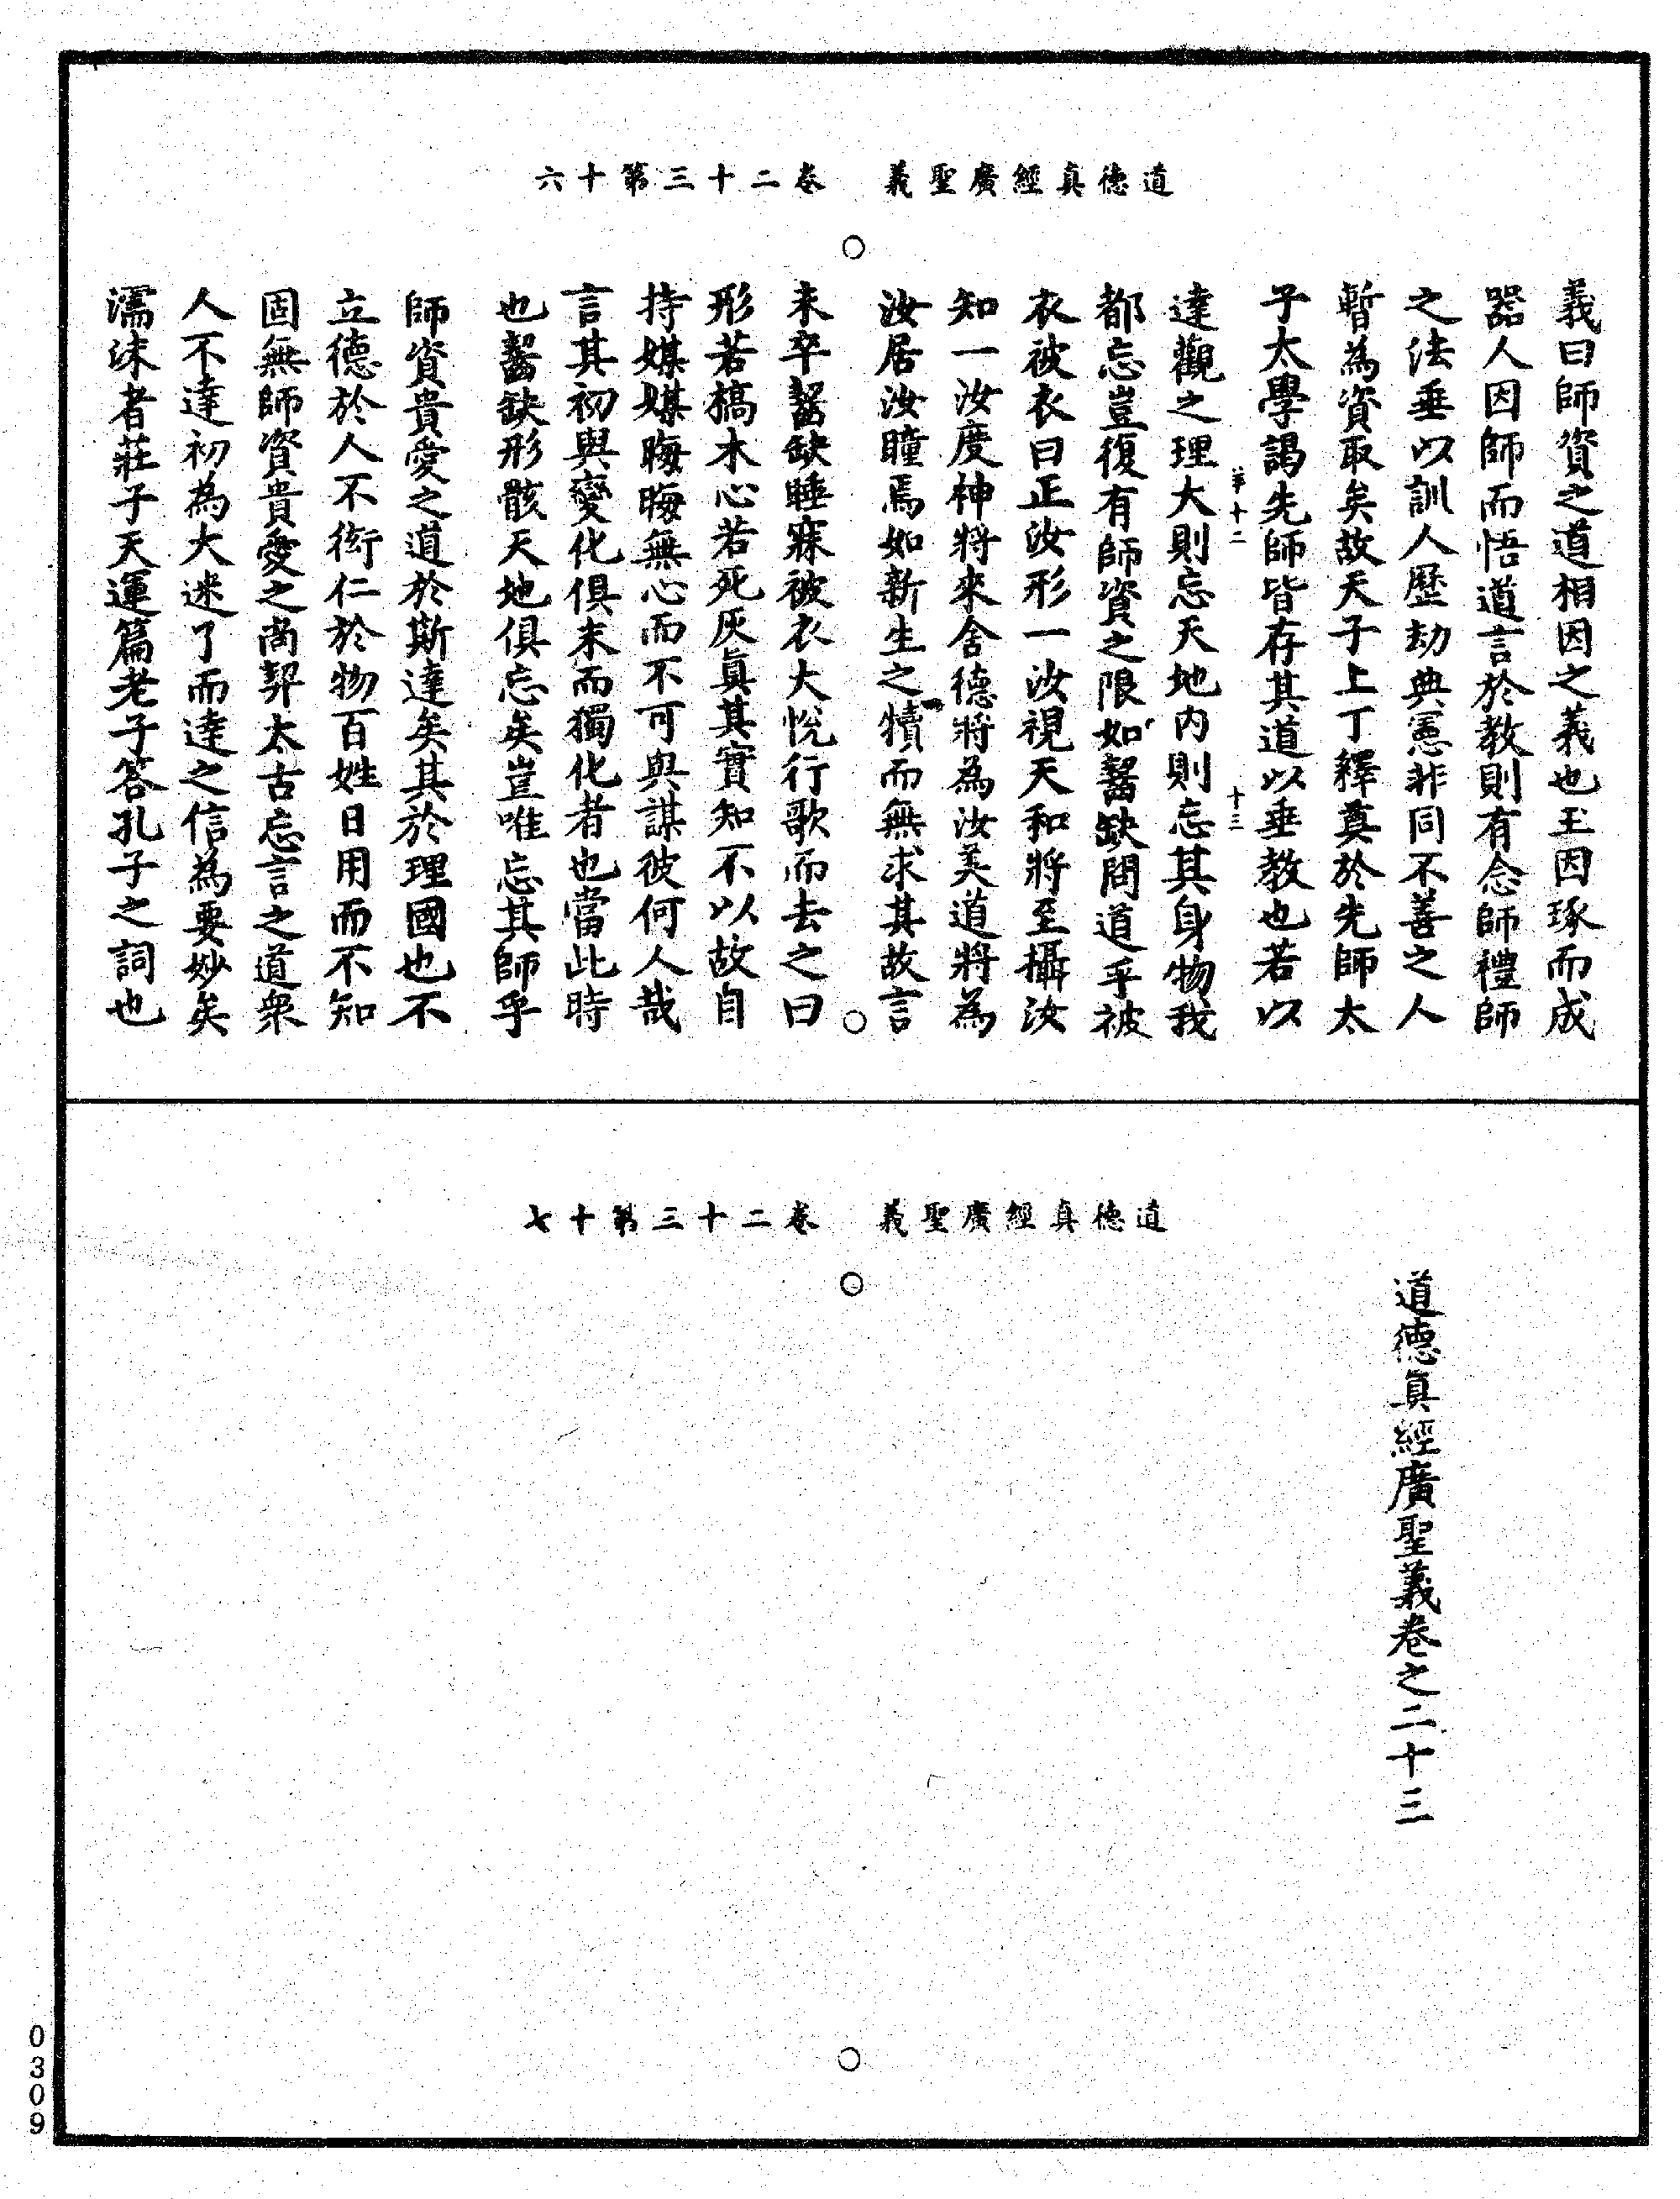 道德真經廣聖義　卷二十三第十六
義曰師資之道相因之義也玉因琢而成
器人因師而悟道言於教則有念師禮師
之法垂以訓人歷劫典憲非同不善之人
暫為資取矣故天子上丁釋奠於先師太
子太學謁先師皆存其道以垂教也若以
十二
十三
達觀之理大則忘天地内則忘其身物我
都忘豈復有師資之限如齧缺問道乎被
衣被衣曰正汝形一汝視天和將至攝汝
知一汝度神將來舍德將為汝美道將為
汝居汝瞳焉如新生之犢而無求其故言
未卒齧缺睡寐被衣大悅行歌而去之曰
形若槁木心若死灰真其實知不以故自
持媒媒晦晦無心而不可與謀彼何人哉
言其初與變化俱末而獨化者也當此時
也齧缺形骸天地俱忘矣豈唯忘其師乎
師資貴愛之道於斯達矣其於理國也不
立德於人不衒仁於物百姓日用而不知
固無師資貴愛之尚契太古忘言之道衆
人不達初為大迷了而達之信為要妙矣
濡沫者莊子天運篇老子答孔子之詞也
道德真經廣聖義　卷二十三第十七
道德真經廣聖義卷之二十三
0309